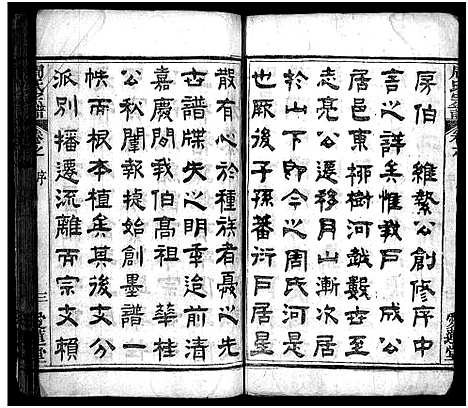 房伯維縈公創修序中
言之詳矣惟我戶成公
居邑東柳樹河越數世
志亮公遂移月山前居
於山下即今之周氏河
也厥後子孫蕃衍戶居星
散有心於種族者憂之先
世譜牒失之明季迨前清
嘉慶間我伯高祖華桂
公秋闈報捷始創墨譜一
帙而根本植矣其後支分
派別播遷流離而宗支賴
周氏宗譜
卷之
序
三
愛蓮堂